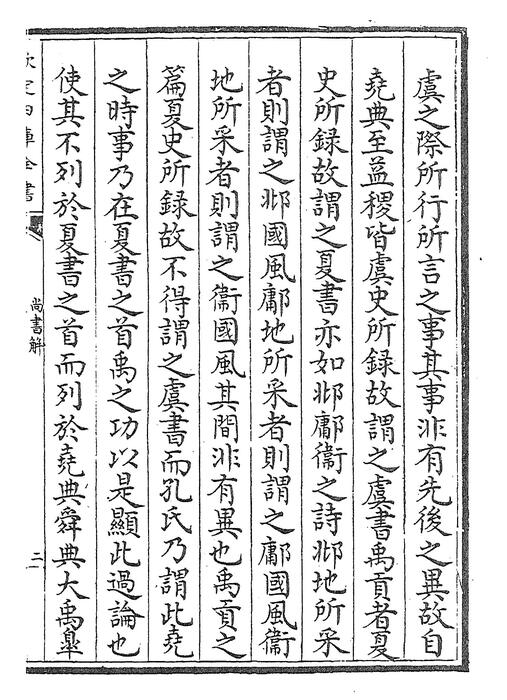 虞之際所行所言之事其事非有先後之異故自
堯典至益稷皆虞史所録故謂之虞書禹貢者夏
史所録故謂之夏書亦如邶鄘衞之詩邶地所采
者則謂之邶國風鄘地所采者則謂之鄘國風衞
地所采者則謂之衞國風其間非有異也禹貢之
篇夏史所録故不得謂之虞書而孔氏乃謂此堯
之時事乃在夏書之首禹之功以是顯此過論也
使其不列於夏書之首而列於堯典舜典大禹臯
欽定四庫全書
尚書解
二